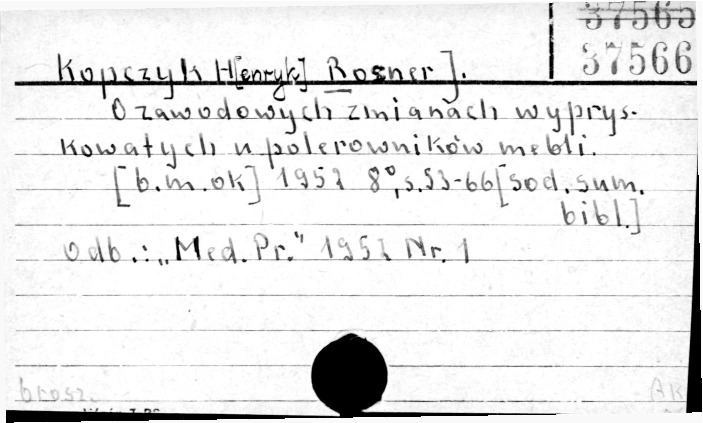 37565
37566
Kopczyk H[enryk] Rosner J.
O zawodowych zmianach wyprys-
kowatych u polerowników mebli.
[b.m.ok] 1952 8°, s.53-66 [sod. sum.
bibl.]
Odb.: "Med. Pr." 1952 Nr. 1
brosz.
AR